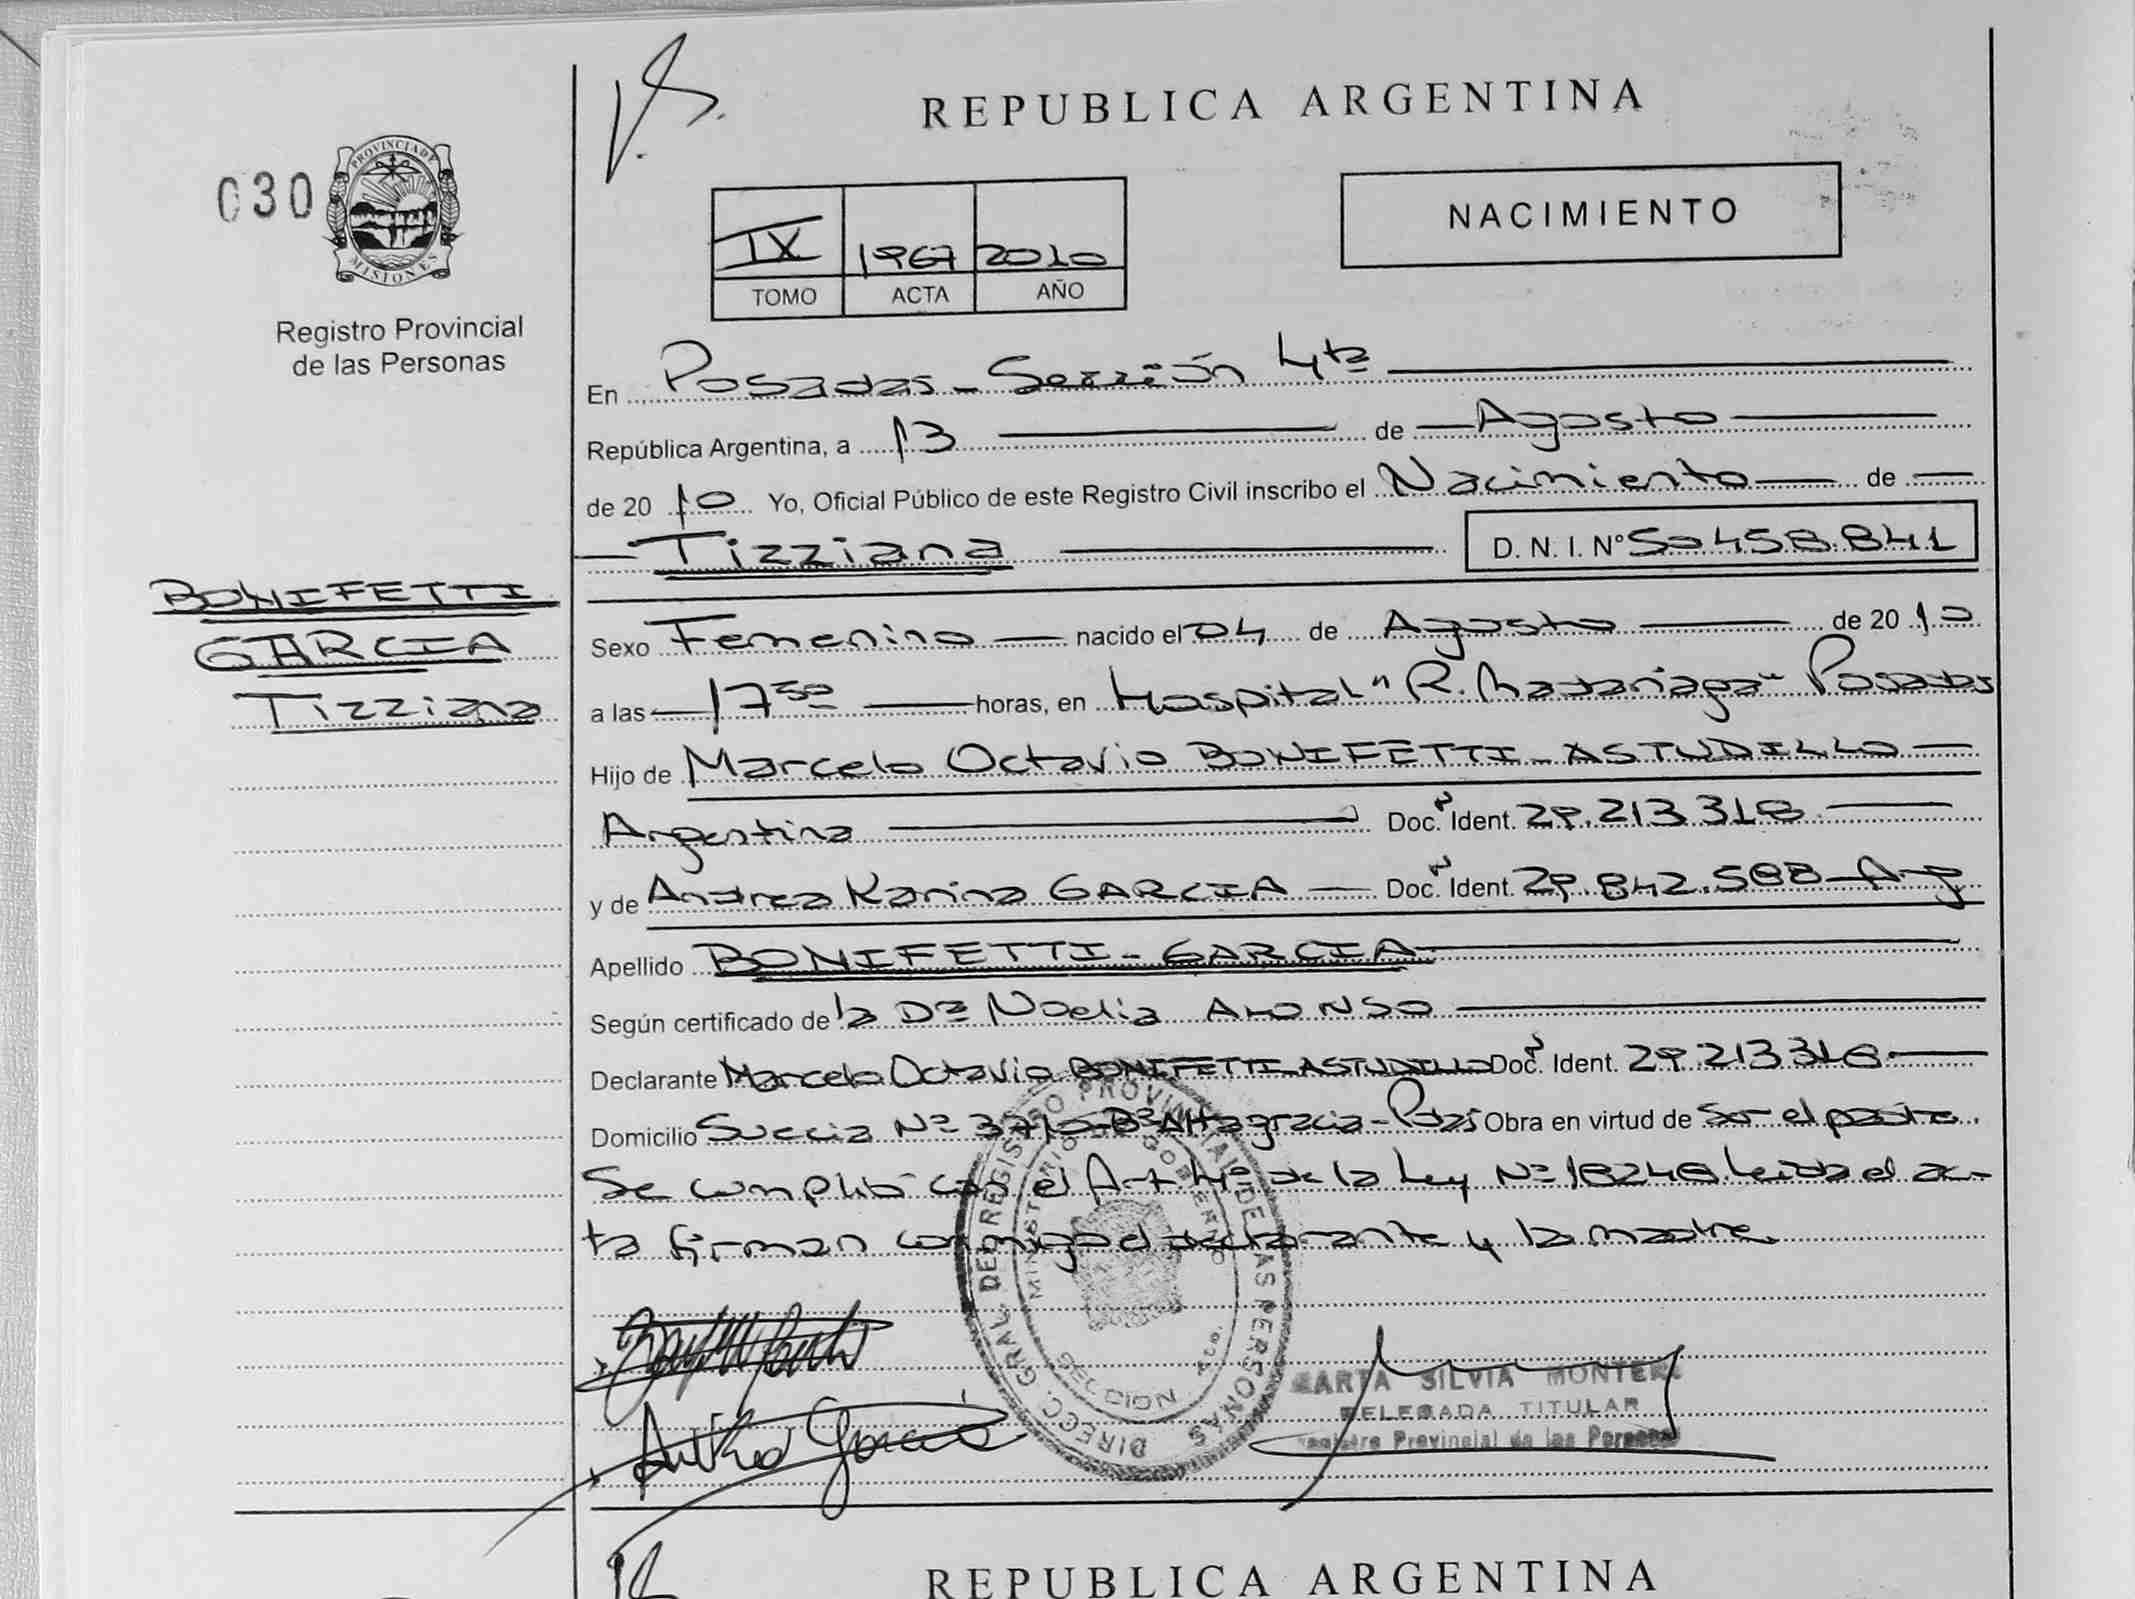 REPUBLICA ARGENTINA
030
PROVINCIA DE
MISIONES
Registro Provincial
de las Personas
NACIMIENTO
IX 1967 2010
TOMO ACTA AÑO
En Posadas - Sección 4ta
República Argentina, a 13 de Agosto
de 2010 Yo, Oficial Público de este Registro Civil inscribo el Nacimiento de
Tizziana D. N. I. Nº 50458.841
BONIFETTI
GARCIA
Tizziana
Sexo Femenino nacido el 04 de Agosto de 2010
a las 17 30 horas, en Hospital "R. Madariaga" Posadas
Hijo de Marcelo Octavio BONIFETTI - ASTUDILLO
Argentina Doc. Ident. 29.213.318
y de Andrea Karina GARCIA Doc. Ident. 29.842.588 - Arg
Apellido BONIFETTI - GARCIA
Según certificado de la Dra Noelia ALONSO
Declarante Marcelo Octavio BONIFETTI ASTUDILLO Doc. Ident. 29.213.318
Domicilio Suecia Nº 3710 - Bº Altagracia - Pdas Obra en virtud de Ser el padre.
Se cumplió con el Art 4º de la Ley Nº 18248. Leida el ac-
ta firman conmigo el declarante y la madre.
DIRECC. GRAL DEL REGISTRO PROVINCIAL DE LAS PERSONAS
MINISTERIO GOBIERNO
SECCION 4ta.
MARTA SILVIA MONTER
DELEGADA TITULAR
Registro Provincial de las Personas
REPUBLICA ARGENTINA